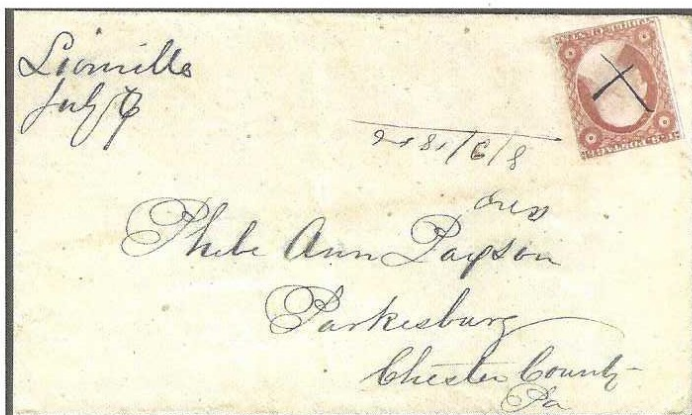 Lionville
July 6
Phebe Ann Paxson
Parkesburg
Chester County
Pa